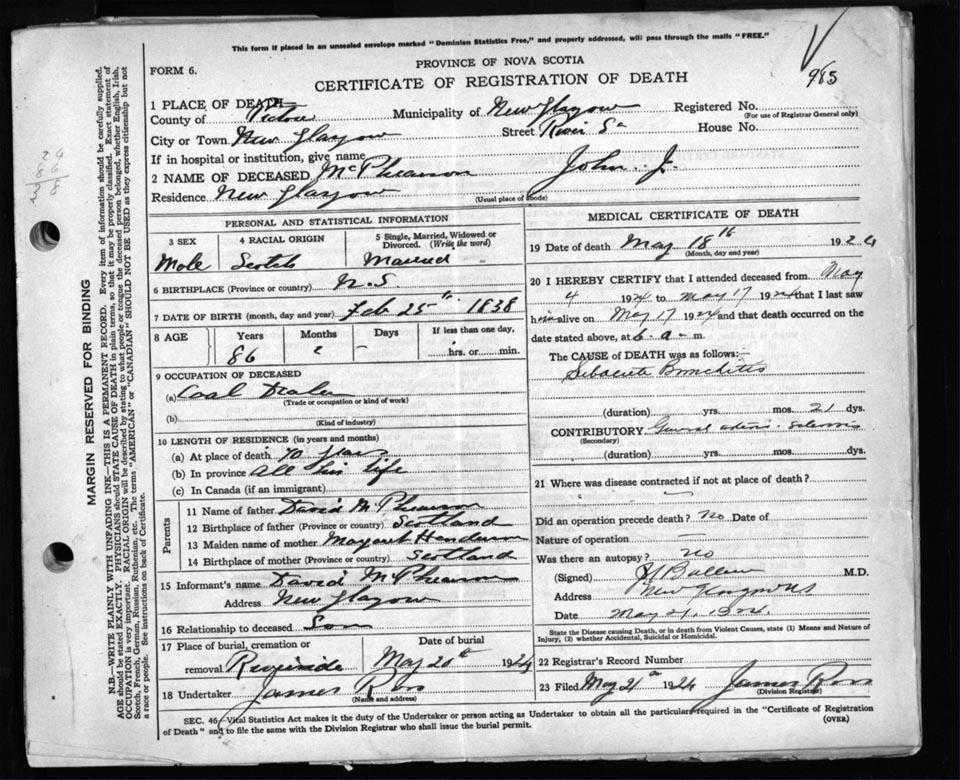 This form if placed in an unsealed envelope marked "Dominion Statistics Free," and properly addressed, will pass through the mails "FREE."
PROVINCE OF NOVA SCOTIA
985
FORM 6.
CERTIFICATE OF REGISTRATION OF DEATH
1 PLACE OF DEATH
County of Pictou Municipality of New Glasgow Registered No.
(For use of Registrar General only)
City or Town New Glasgow Street River St House No.
If in hospital or institution, give name
2 NAME OF DECEASED McPhearson John. J.
Residence New Glasgow
(Usual place of abode)
PERSONAL AND STATISTICAL INFORMATION
3 SEX 4 RACIAL ORIGIN 5 Single, Married, Widowed or Divorced. (Write the word)
Male Scotch Married
6 BIRTHPLACE (Province or country) N.S.
7 DATE OF BIRTH (month, day and year) Feb 25th 1838
8 AGE Years Months Days If less than one day,
86 2 - hrs. or min.
9 OCCUPATION OF DECEASED
(a) Coal Dealer
(Trade or occupation or kind of work)
(b)
(Kind of industry)
10 LENGTH OF RESIDENCE (in years and months)
(a) At place of death 70
(b) In province all his life
(c) In Canada (if an immigrant)
Parents
11 Name of father David McPhearson
12 Birthplace of father (Province or country) Scotland
13 Maiden name of mother Margaret Henderson
14 Birthplace of mother (Province or country) Scotland
15 Informant's name David McPhearson
Address New Glasgow
16 Relationship to deceased Son
17 Place of burial, cremation or removal Date of burial
Riverside May 20th 1924
18 Undertaker James Ross
(Name and address)
MEDICAL CERTIFICATE OF DEATH
19 Date of death May 18th 1924
(Month, day and year)
20 I HEREBY CERTIFY that I attended deceased from May
4 1924 to May 17 1924 that I last saw
him alive on May 17 1924 and that death occurred on
date stated above, at 6 a-m.
The CAUSE of DEATH was as follows:-
Bronchitis
(duration) yrs. mos. 21 dys.
CONTRIBUTORY General
(Secondary)
(duration) yrs. mos. dys.
21 Where was disease contracted if not at place of death?
Did an operation precede death? No Date of
Nature of operation
Was there an autopsy? No
(Signed) M.D.
Address New Glasgow NS
Date May 21, 1924
State the Disease causing Death, or in death from Violent Causes, state (1) Means and Nature of Injury, (2) whether Accidental, Suicidal or Homicidal.
22 Registrar's Record Number
23 Filed May 21 1924 James Ross
(Division Registrar)
SEC. 46 Vital Statistics Act makes it the duty of the Undertaker or person acting as Undertaker to obtain all the particulars required in the "Certificate of Registration
of Death" and to file the same with the Division Registrar who shall issue the burial permit.
(OVER)
MARGIN RESERVED FOR BINDING
N.B.—WRITE PLAINLY, WITH UNFADING INK—THIS IS A PERMANENT RECORD. Every item of information should be carefully supplied.
AGE should be stated EXACTLY. PHYSICIANS should STATE CAUSE OF DEATH in plain terms, so that it may be properly classified. Exact statement of
OCCUPATION is very important. RACIAL ORIGIN will be described by stating to what people or tongue the deceased person belonged, whether English, Irish,
Scotch, French, German, Russian, Ruthenian, etc. The terms "AMERICAN" or "CANADIAN" SHOULD NOT BE USED as they express citizenship but not
a race or people. See instructions on back of Certificate.